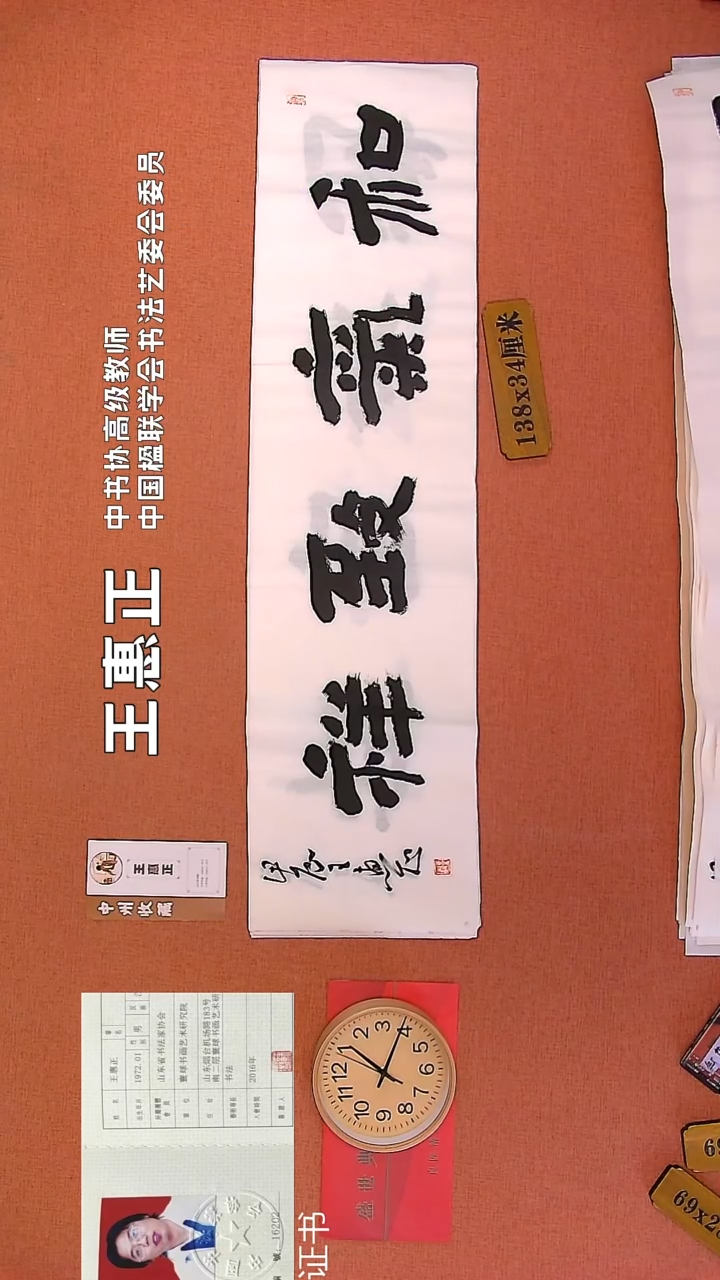 王惠正
中书协高级教师
中国楹联学会书法艺委会委员
和氣致祥
甲辰王惠正
138x34厘米
王惠正
中州收藏
姓名 王惠正
1972.01 性别 男
山东省书法家协会
寰球书画艺术研究院
山东烟台机场路183号
南二层寰球书画艺术研
书法
2016年
號: 16202
证书
12
1
2
3
4
5
6
7
8
9
10
11
69x